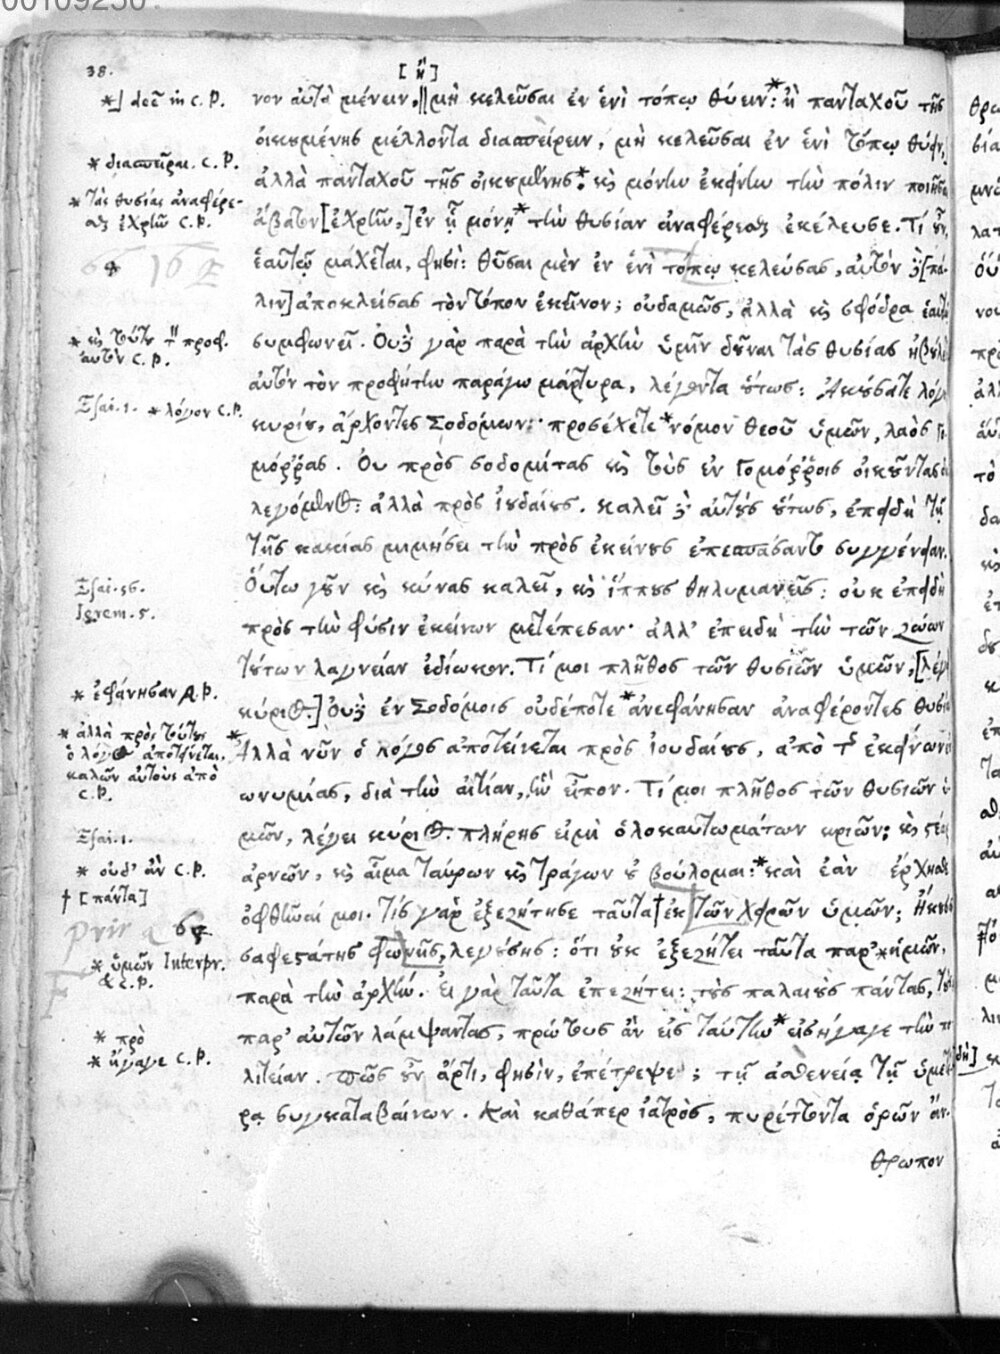 00109250
38.
[ἢ]
νον αὐτὰ μένειν, || μὴ κελεῦσαι ἐν ἑνὶ τόπῳ θύειν:* ἢ πανταχοῦ τῆς
οἰκουμένης μέλλοντα διασπείρειν, μὴ κελεῦσαι ἐν ἑνὶ τόπῳ θύειν,
ἀλλὰ πανταχοῦ τῆς οἰκουμένης:* καὶ μόνην ἐκείνην τὴν πόλιν ποιῆσαι
ἄβατον [ἐχρῆν,] ἐν ᾗ μόνῃ* τὴν θυσίαν ἀναφέρεσθαι ἐκέλευσε. Τί οὖν,
ἑαυτῷ μάχεται, φησί: θῦσαι μὲν ἐν ἑνὶ τόπῳ κελεύσας, αὐτὸν δὲ [πά-
λιν] ἀποκλείσας τὸν τόπον ἐκεῖνον; οὐδαμῶς, ἀλλὰ καὶ σφόδρα ἑαυτῷ
συμφωνεῖ. Οὐδὲ γὰρ παρὰ τὴν ἀρχὴν ὑμῖν δοῦναι τὰς θυσίας
αὐτὸν τὸν προφήτην παράγω μάρτυρα, λέγοντα οὕτως: Ἀκούσατε λόγον
κυρίου, ἄρχοντες Σοδόμων: προσέχετε* νόμον θεοῦ ὑμῶν, λαὸς Γο
μόρρας. Οὐ πρὸς σοδομίτας καὶ τοὺς ἐν Γομόρροις οἰκοῦντας ὁ
λεγόμενος: ἀλλὰ πρὸς ἰουδαίους. καλεῖ δὲ αὐτοὺς οὕτως, ἐπειδὴ τῇ
τῆς κακίας μιμήσει τὴν πρὸς ἐκείνους ἐπεσπάσαντο συγγένειαν.
Οὕτω γοῦν καὶ κύνας καλεῖ, καὶ ἵππους θηλυμανεῖς: οὐκ ἐπειδὴ
πρὸς τὴν φύσιν ἐκείνων μετέπεσαν· ἀλλ' ἐπειδὴ τὴν τῶν ζώων
τούτων λαγνείαν ἐδίωκον. Τί μοι πλῆθος τῶν θυσιῶν ὑμῶν, [λέγει
κύριος.] Οὐδὲ ἐν Σοδόμοις οὐδέποτε* ἀνεφάνησαν ἀναφέροντες θυσίαν
* Ἀλλὰ νῦν ὁ λόγος ἀποτείνεται πρὸς ἰουδαίους, ἀπὸ τῆς ἐκείνων
ωνυμίας, διὰ τὴν αἰτίαν, ἣν εἶπον. Τί μοι πλῆθος τῶν θυσιῶν ὑ
μῶν, λέγει κύριος. πλήρης εἰμὶ ὁλοκαυτωμάτων κριῶν; καὶ στέαρ
ἀρνῶν, καὶ αἷμα ταύρων καὶ τράγων οὐ βούλομαι:* καὶ ἐὰν ἔρχησθε
ὀφθῆναί μοι. Τίς γὰρ ἐξεζήτησε ταῦτα † ἐκ τῶν χειρῶν ὑμῶν; Ἤκουσας
σαφεστάτης φωνῆς, λεγούσης: ὅτι οὐκ ἐξεζήτει ταῦτα παρ' * ἡμῶν,
παρὰ τὴν ἀρχήν. Εἰ γὰρ ταῦτα ἐπεζήτει: τοὺς παλαιοὺς πάντας, τοὺς
παρ' αὐτῶν λάμψαντας, πρώτους ἂν εἰς ταύτην* εἰσήγαγε τὴν πο
λιτείαν. πῶς οὖν ἄρτι, φησὶν, ἐπέτρεψε; τῇ ἀσθενείᾳ τῇ ὑμετέ
ρᾳ συγκαταβαίνων. Καὶ καθάπερ ἰατρὸς, πυρέττοντα ὁρῶν ἄν-
θρωπον
*] dec̄ in C.P.
* διασπεῖραι. C.P.
* τὰς θυσίας ἀναφέρε-
σθαι ἐχρῆν C.P.
αὐτὸν C.P.
Esai. 1. * λόγον C.P.
Esai. 56.
Ierem. 5.
* ἐφάνησαν A.P.
* ἀλλὰ πρὸς τούτους
ὁ λόγος ἀποτείνεται,
καλῶν αὐτοὺς ἀπὸ
C.P.
Esai. 1.
* οὐδ' ἂν C.P.
† [πάντα]
* ὑμῶν Interpr.
& C.P.
* πρὸ
* ἤγαγε C.P.
δὴ]